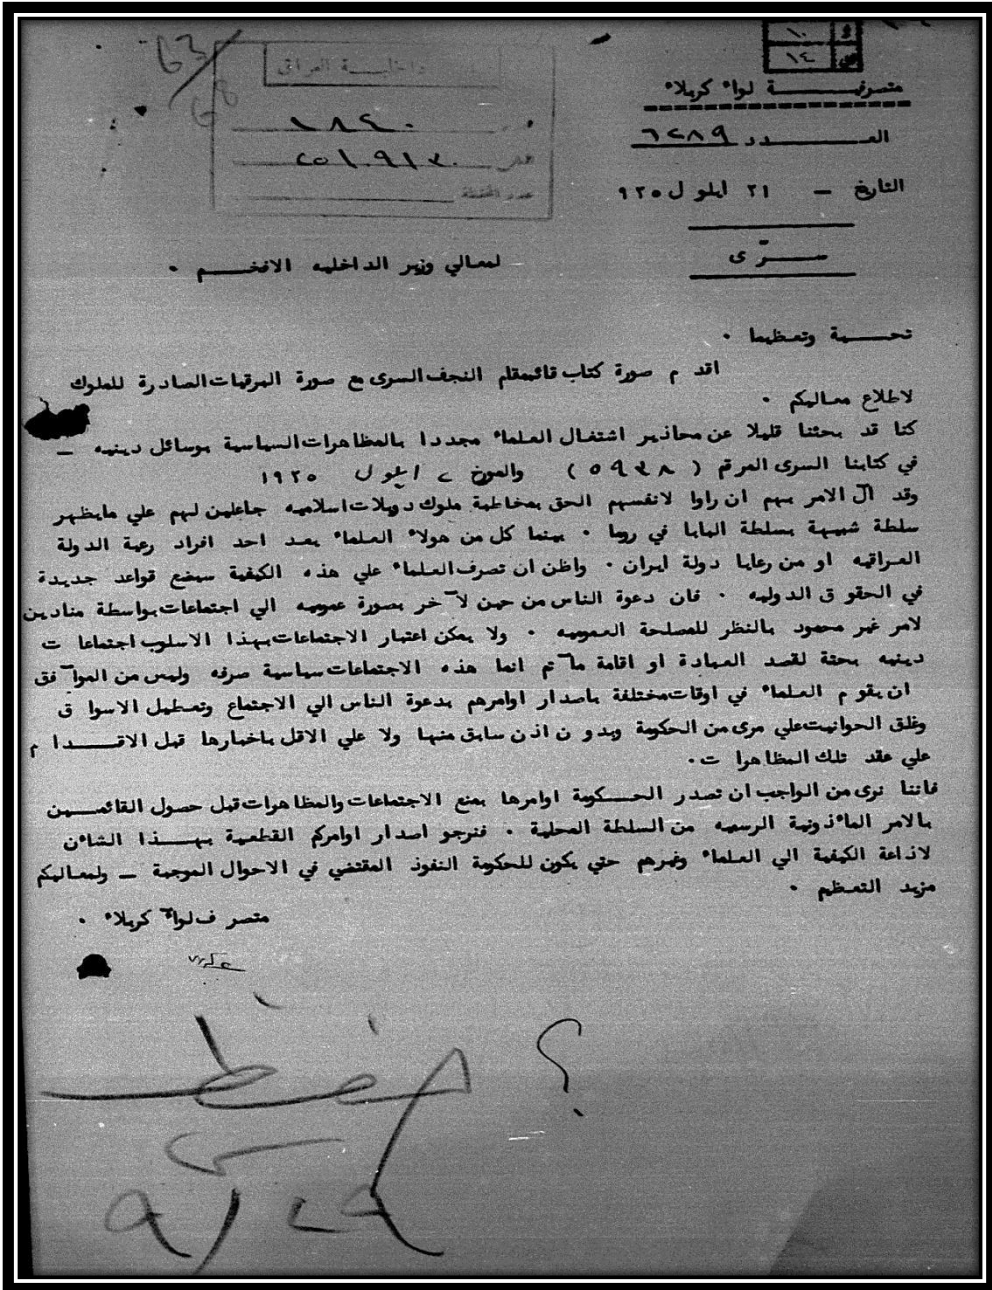 ١٠
١٤
داخلية العراق
متصرفيـــة لواء كربلاء
١٨٤٠
العـــــدد ٦٢٨٩
عدد المحفظة
التاريخ – ٢١ ايلول ٩٢٥
ســـرّى
لمعالي وزير الداخليه الافخـــم ٠
تحـــية وتعظيما ٠
اقد م صورة كتاب قائمقام النجف السرى مع صورة البرقيات الصادرة للملوك
لاطلاع معاليكم ٠
كنا قد بحثنا قليلا عن محاذير اشتغال العلماء مجددا بالمظاهرات السياسية بوسائل دينيه –
في كتابنا السرى المرقم ( ٥٩٣٨ ) والمورخ ٧ ايلول ١٩٢٥
وقد آل الامر بهم ان راوا لانفسهم الحق بمخاطبة ملوك دويلات اسلاميه جاعلين لهم علي مايظهر
سلطة شبيهة بسلطة البابا في روما ٠ بينما كل من هولاء العلماء يعد احد افراد رعية الدولة
العراقيه او من رعايا دولة ايران ٠ واظن ان تصرف العلماء علي هذه الكيفية سيضع قواعد جديدة
في الحقو ق الدوليه ٠ فان دعوة الناس من حين لآخر بصورة عموميه الي اجتماعات بواسطة منادين
لامر غير محمود بالنظر للمصلحة العموميه ٠ ولا يمكن اعتبار الاجتماعات بهذا الاسلوب اجتماعا ت
دينيه بحتة لقصد العبادة او اقامة مآتم انما هذه الاجتماعات سياسية صرفه وليس من الموافق
ان يقو م العلماء في اوقات مختلفة باصدار اوامرهم بدعوة الناس الي الاجتماع وتعطيل الاسوا ق
وغلق الحوانيت علي مرى من الحكومة وبدو ن اذن سابق منها ولا علي الاقل باخبارها قبل الاقـــدا م
علي عقد تلك المظاهرا ت ٠
فاننا نرى من الواجب ان تصدر الحـــكومة اوامرها بمنع الاجتماعات والمظاهرات قبل حصول القائمـــين
بالامر المأذونية الرسميه من السلطة المحلية ٠ فنرجو اصدار اوامركم القطعية بهـــذا الشأن
لاذاعة الكيفية الي العلماء وغيرهم حتي يكون للحكومة النفوذ المقتضي في الاحوال الموجبة – ولمعاليكم
مزيد التعظيم ٠
متصر ف لواء كربلاء ٠
؟
حفظ
٩/٢٩